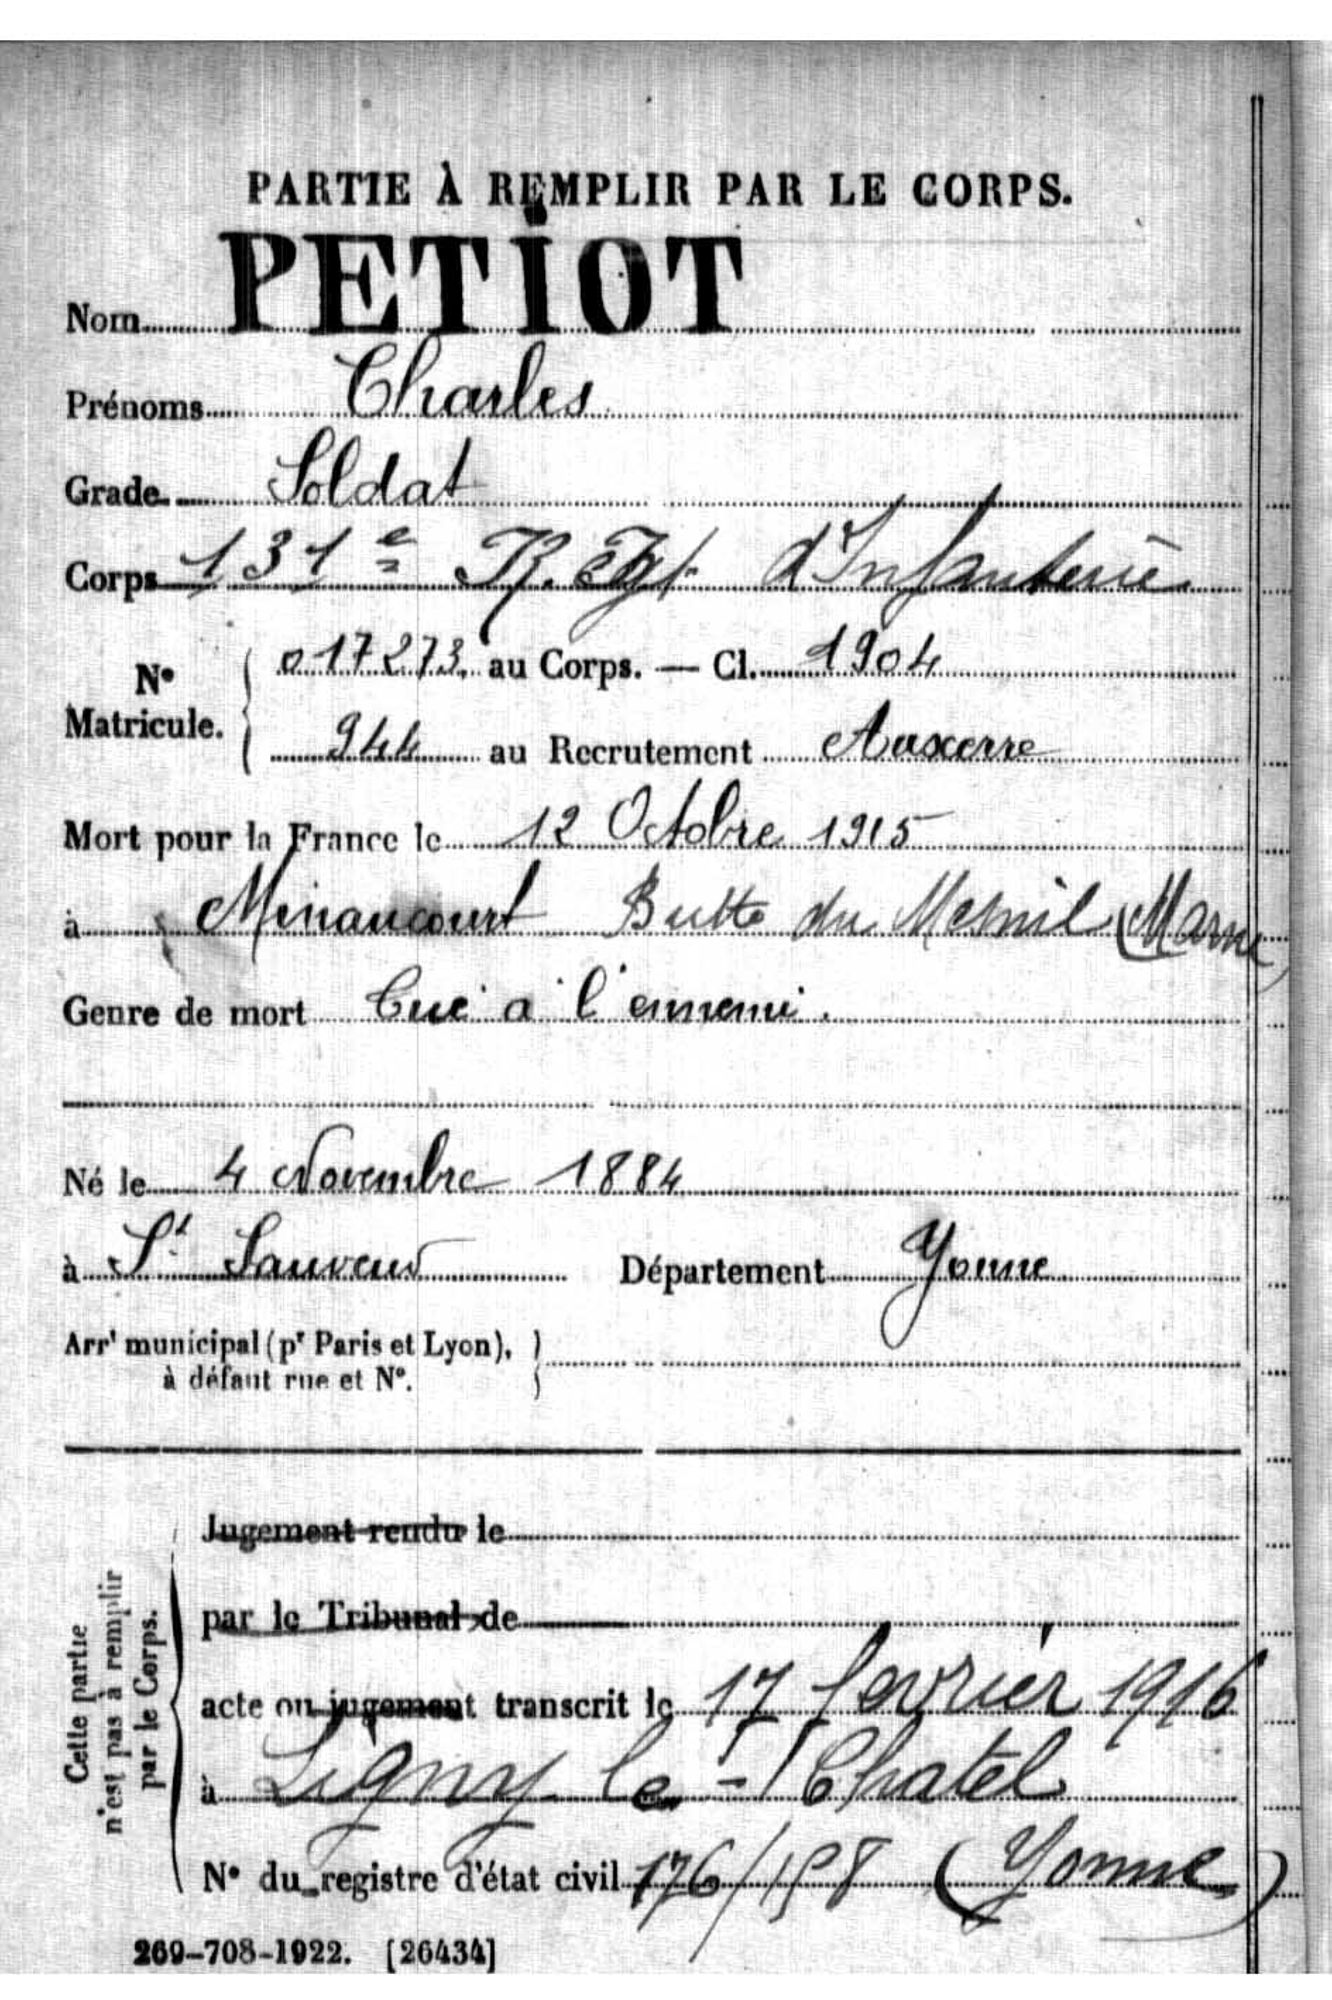 PARTIE À REMPLIR PAR LE CORPS.
Nom PETIOT
Prénoms Charles
Grade Soldat
Corps 131e Régt d'Infanterie
N° Matricule. 017273 au Corps. — Cl. 1904
944 au Recrutement Auxerre
Mort pour la France le 12 Octobre 1915
à Minaucourt Butte du Mesnil (Marne)
Genre de mort Tué à l'ennemi.
Né le 4 Novembre 1884
à St Sauveur Département Yonne
Arrt municipal (pr Paris et Lyon),
à défaut rue et N°.
Cette partie
n'est pas à remplir
par le Corps.
Jugement rendu le
par le Tribunal de
acte ou jugement transcrit le 17 février 1916
à Ligny-le-Chatel
N° du registre d'état civil 176/198 (Yonne)
269-708-1922. [26434]